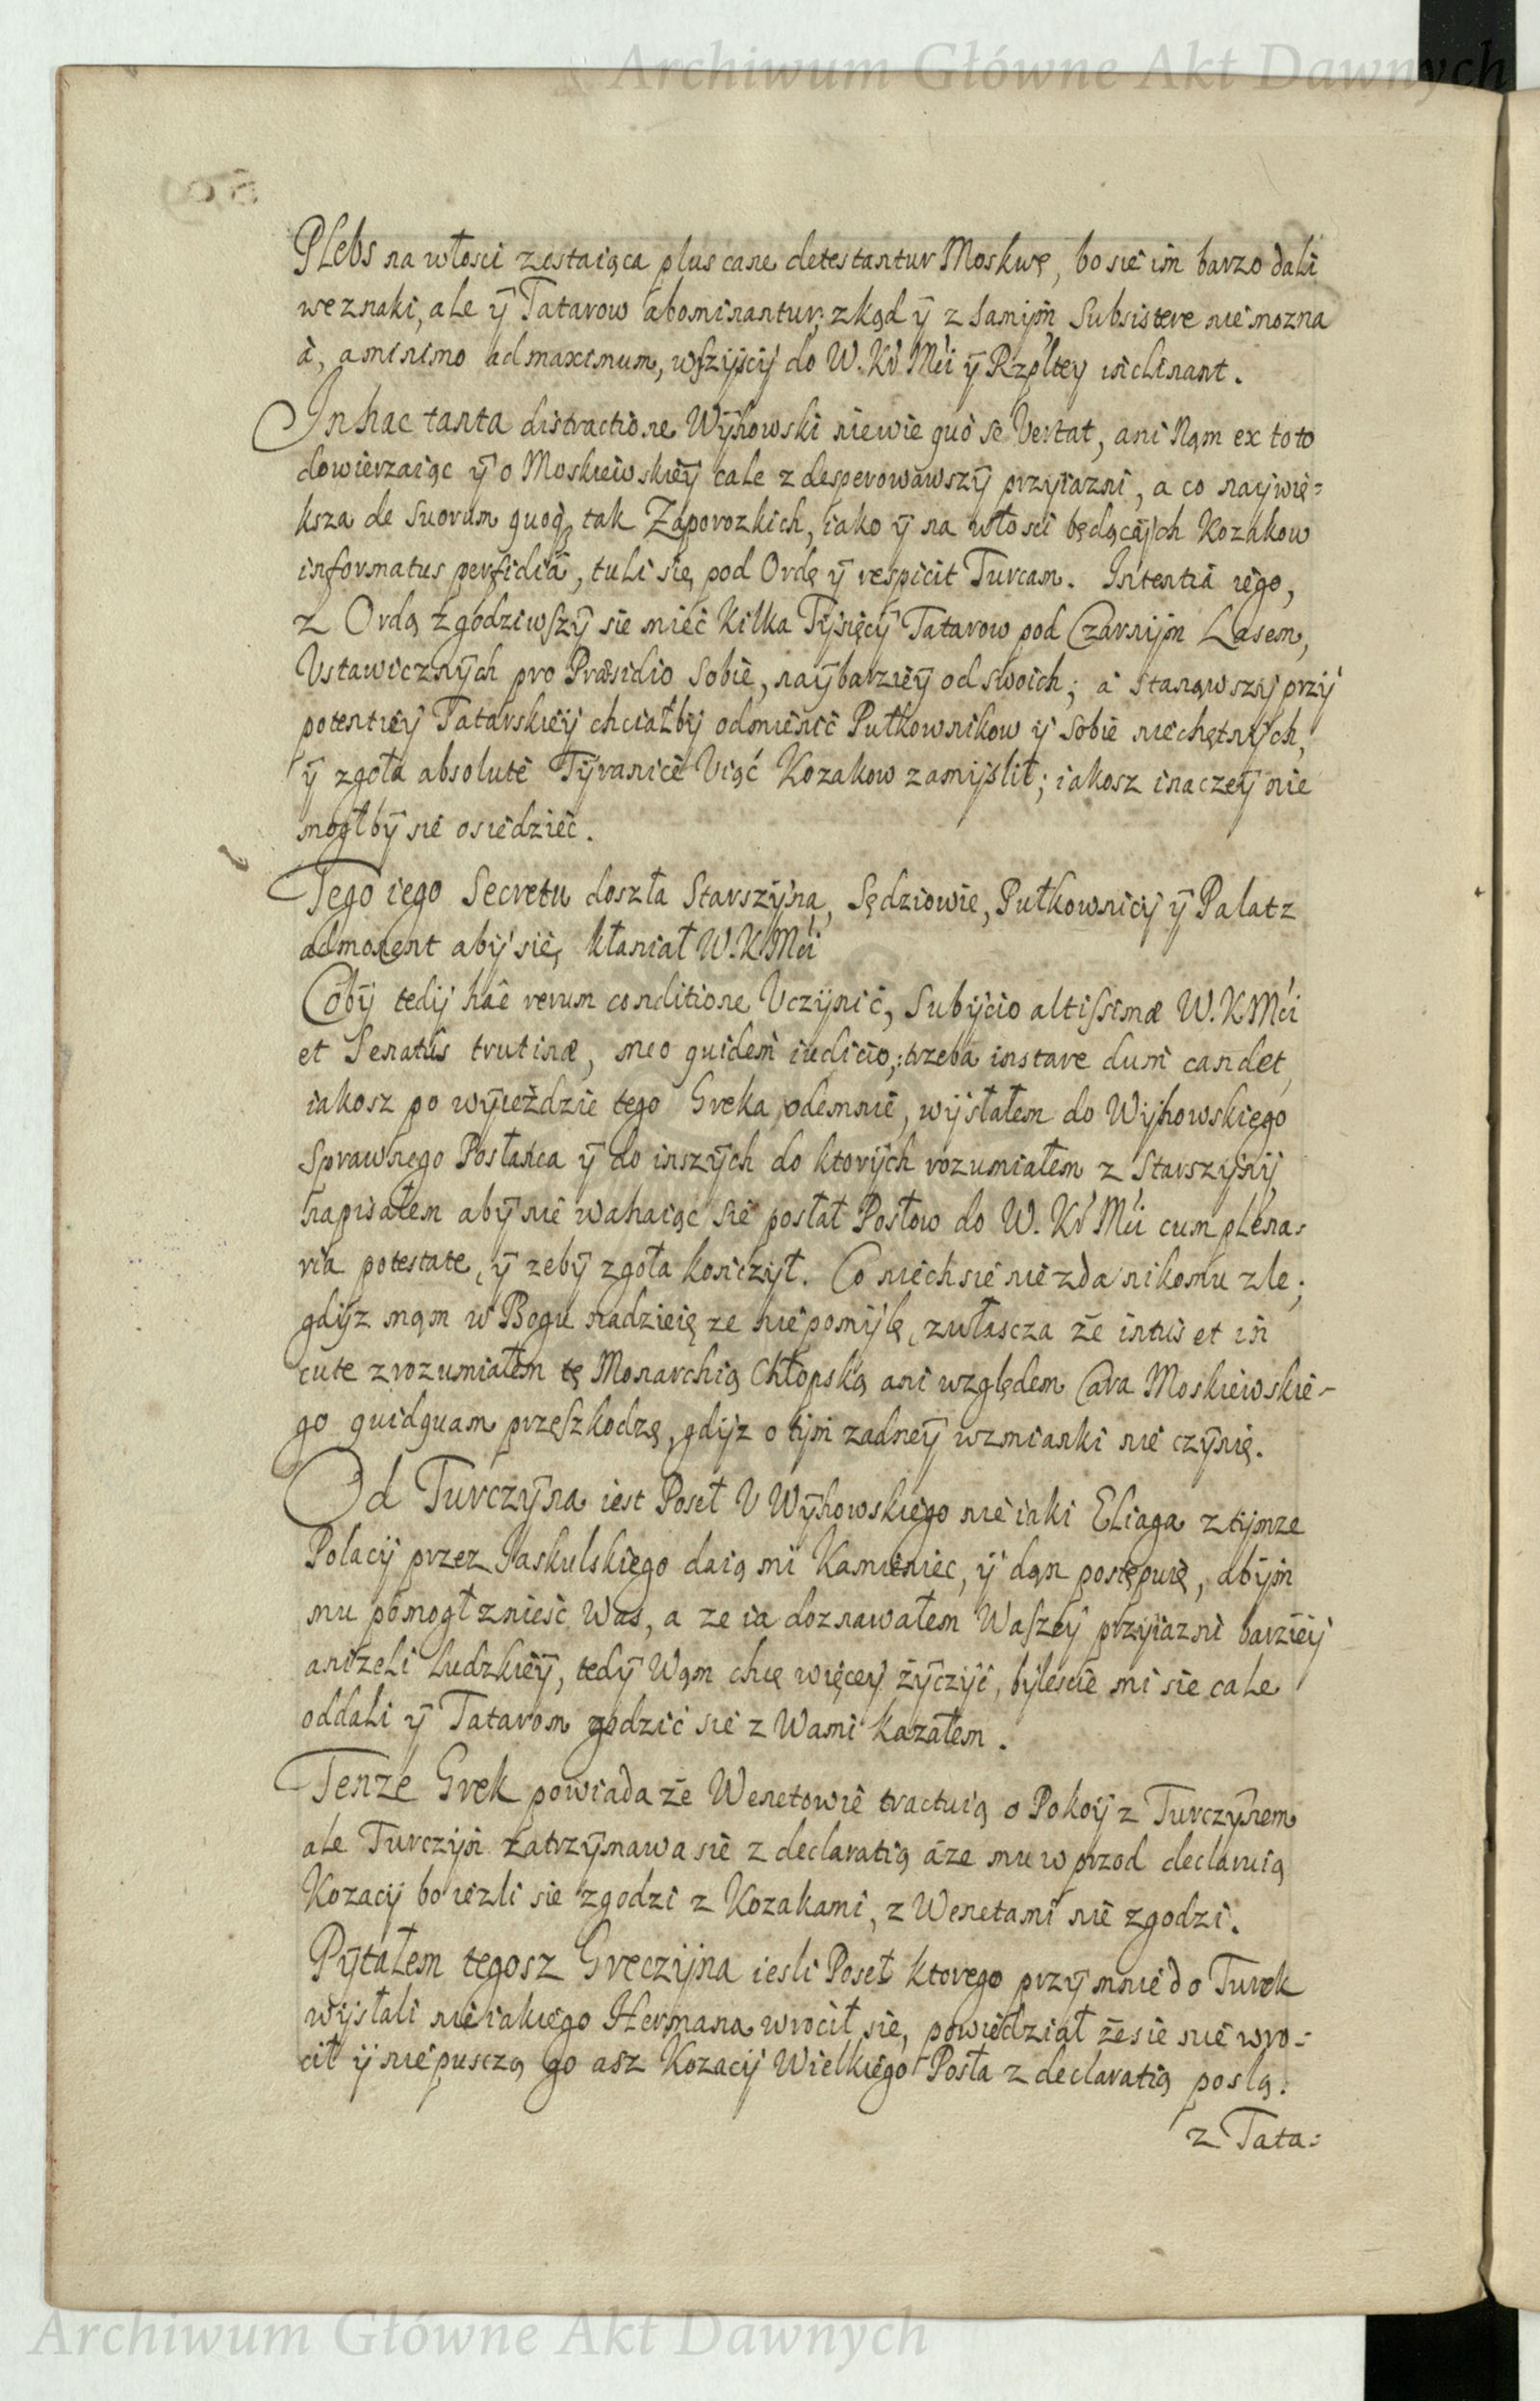 Archiwum Główne Akt Dawnych
Plebs na włosci zostaiąca plus cane detestantur Moskwę, bo sie im barzo dali
we znaki, ale ÿ Tatarow abominantur, zkąd ÿ z samÿm Subsistere nie mozna
à, a minimo ad maximum, wszÿscÿ do W. Kr Mći ÿ Rzpltey inclinant.
In hac tanta distractione Wÿhowski niewie quo se Vertat, ani Nąm ex toto
dowierzaiąc ÿ o Moskiewskieÿ cale z desperowawszÿ przyiazni, a co naywię=
ksza de Suorum quoq, tak Zaporozkich, iako ÿ na włosci będącÿch Kozakow
informatus perfidiâ, tuli się pod Ordę ÿ respicit Turcam. Intentia iego,
z Ordą zgodziwszÿ sie mieć Kilka Tÿsięcÿ Tatarow pod Czarnÿm Lasem,
Vstawicznÿch pro Præsidio Sobie, naÿbarzieÿ od swoich; a stanąwszÿ przÿ
potentieÿ Tatarskieÿ chciałbÿ odmienić Pułkownikow ÿ Sobie niechętnÿch,
ÿ zgoła absolute Tÿranice Viąć Kozakow zamÿslił; iakosz inaczeÿ nie
mogłbÿ sie osiedzieć.
Tego iego Secretu doszła Starszÿna, Sędziowie, Pułkownicÿ ÿ Palatz
admonent abÿ się kłaniał W.K Mći
Cobÿ tedÿ hac rerum conditione Vczÿnić, Subÿcio altissimæ W.K Mći
et Senatus trutinæ, meo quidem iudicio, trzeba instare dum candet,
iakosz po wÿieździe tego Greka odemnie, wÿsłałem do Wÿhowskiego
Sprawnego Posłańca ÿ do inszÿch do ktorÿch rozumiałem z Starszÿnÿ
napisałem abÿ nie wahaiąc sie posłał Posłow do W. Kr Mći cum plena=
ria potestate, ÿ zebÿ zgoła kończÿł. Co niech sie nie zda nikomu zle;
gdÿz mąm w Bogu nadzieię ze nie pomÿlę, zwłascza że intus et in
cute zrozumiałem tę Monarchią Chłopską ani względem Cara Moskiewskie-
go quidquam przeszkodzę, gdÿz o tÿm zadneÿ wzmianki nie czÿnię.
Od Turczÿna iest Poseł V Wÿhowskiego nieiaki Eliaga z tÿmze
Polacÿ przez Jaskulskiego daią mi Kamieniec, ÿ dąn postępuię, abÿm
mu pomogł znieść Was, a ze ia doznawałem Waszeÿ przÿiazni barzieÿ
anizeli Ludzkieÿ, tedÿ Wąm chcę więceÿ żÿczÿć, bÿleście mi sie cale
oddali ÿ Tatarom godzić sie z Wami kazałem.
Tenze Grek powiada że Wenetowie tractuią o Pokoÿ z Turczÿnem
ale Turczÿn zatrzÿmawa sie z declaratią áze mu wprzod declaruią
Kozacÿ bo iezli sie zgodzi z Kozakami, z Wenetami nie zgodzi.
Pÿtałem tegosz Greczÿna iesli Poseł ktorego przÿ mnie do Turek
wÿsłali nieiakiego Hermana wrocił się, powiedział że sie nie wro=
cił ÿ nie puszczą go asz Kozacÿ Wielkiego Posła z declaratią poslą.
z Tata=
Archiwum Główne Akt Dawnych